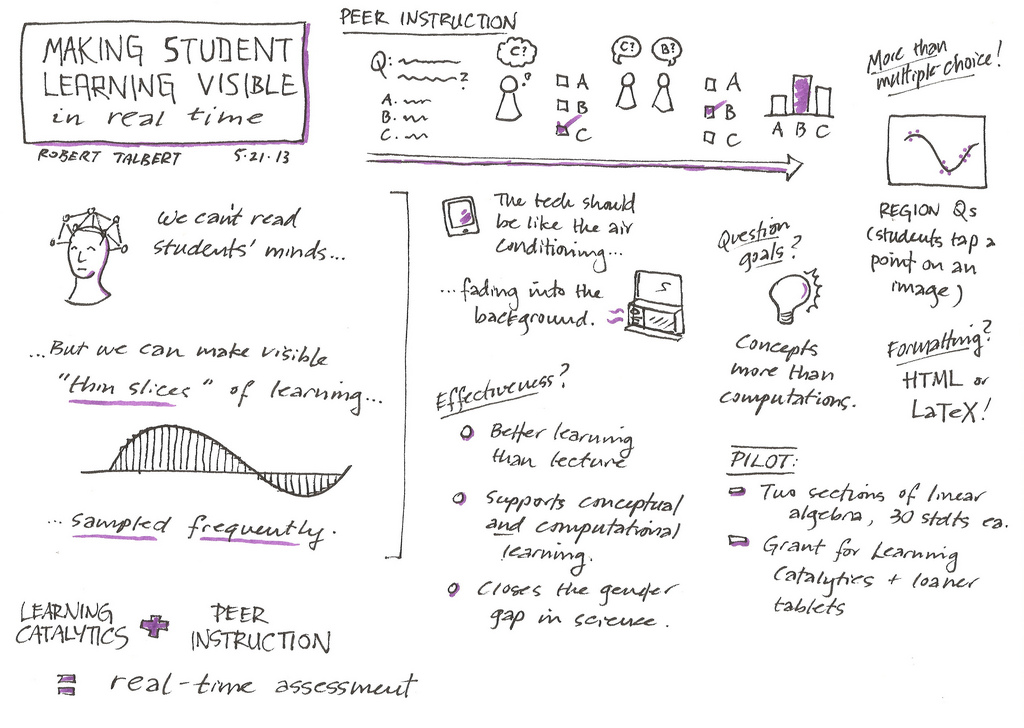 MAKING STUDENT
LEARNING VISIBLE
in real time
ROBERT TALBERT 5.21.13
PEER INSTRUCTION
Q:
?
A.
B.
C.
C?
?
A
B
C
C? B?
A
B
C
A B C
More than
multiple choice!
REGION Qs
(students tap a
point on an
image)
Formatting?
HTML or
LaTeX!
We can't read
students' minds...
...But we can make visible
"thin slices" of learning...
... sampled frequently.
LEARNING
CATALYTICS + PEER
INSTRUCTION
= real-time assessment
The tech should
be like the air
conditioning...
...fading into the
background.
S
Effectiveness?
Better learning
than lecture
Supports conceptual
and computational
learning.
Closes the gender
gap in science.
Question
goals?
Concepts
more than
computations.
PILOT:
Two sections of linear
algebra, 30 stdts ea.
Grant for Learning
Catalytics + loaner
tablets